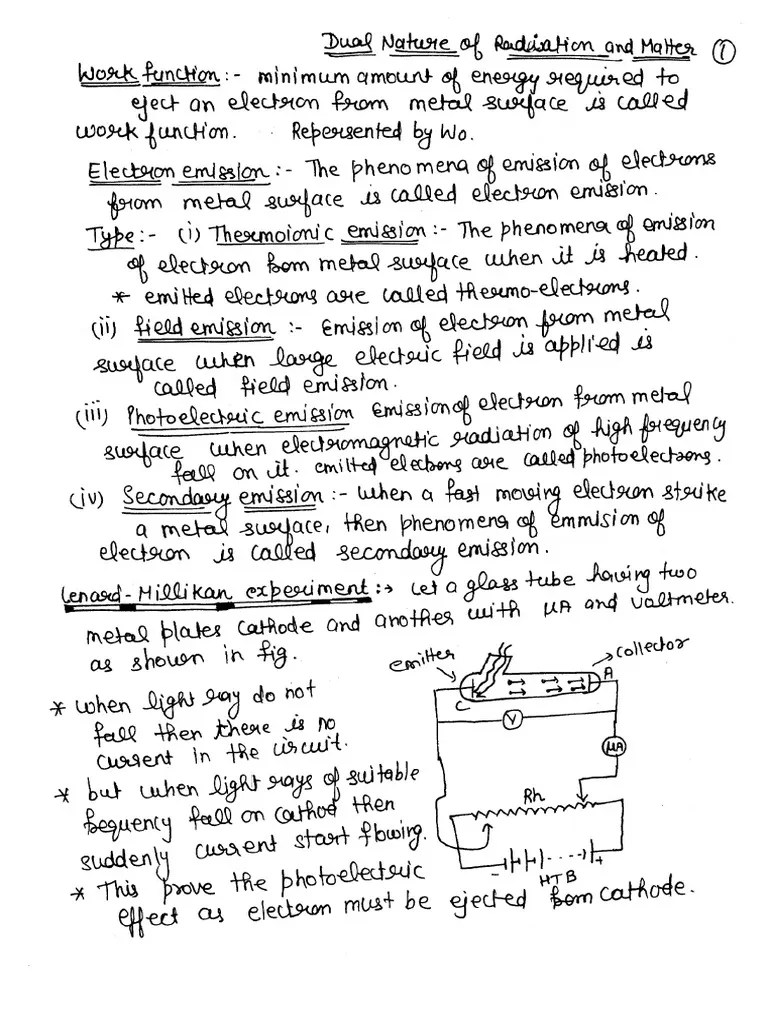 Dual Nature of Raddiation and Matter ①
Work function:- minimum amount of energy required to
eject an electron from metal surface is called
work function. Repersented by Wo.
Electron emission:- The phenomena of emission of electrons
from metal surface is called electron emission.
Type:- (i) Thermoionic emission:- The phenomena of emission
of electron from metal surface when it is heated.
* emitted electrons are called thermo-electrons.
(ii) field emission:- Emission of electron from metal
surface when large electric field is applied is
called field emission.
(iii) Photoelectric emission Emission of electron from metal
surface when electromagnetic radiation of high frequency
fall on it. emitted elections are called photoelectons.
(iv) Secondary emission:- When a fast moving electron strike
a metal surface, then phenomena of emmision of
electron is called secondary emission.
Lenard-Millikan experiment:→ Let a glass tube having two
metal plates cathode and another with μA and voltmeter.
as shown in fig.
emitter
collector
A
C
V
μA
Rh
- +
HTB
* When light ray do not
fall then there is no
current in the circuit.
* but when light rays of suitable
fequency fall on cathod then
suddenly current start flowing.
* This prove the photoelectric
effect as electron must be ejected from cathode.